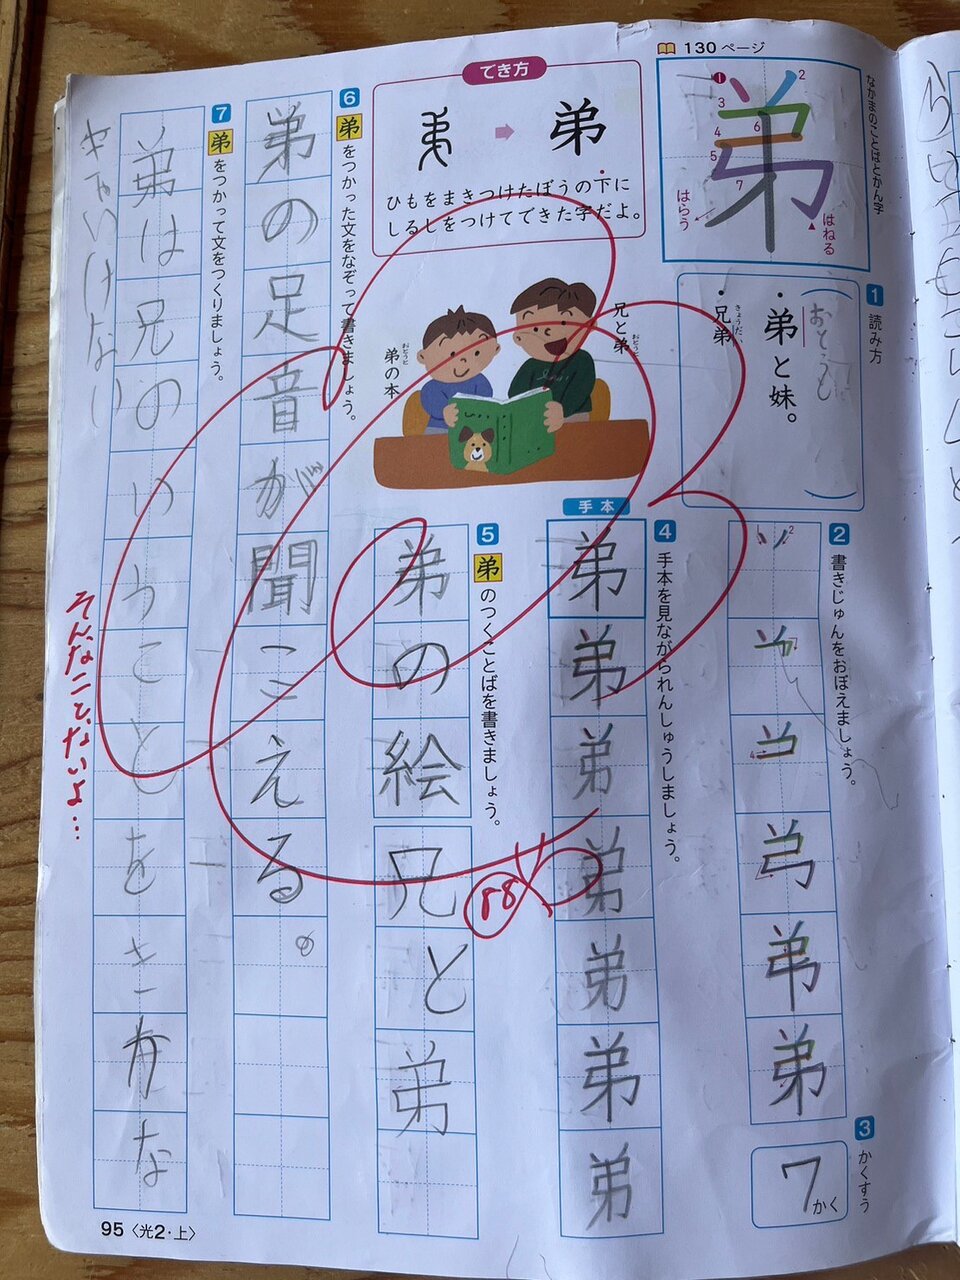 130ページ
なかまのことばとかん字
弟
1
2
3
4
5
6
7
はらう
はねる
でき方
弟
ひもをまきつけたぼうの下に
しるしをつけてできた字だよ。
1 読み方
おとうと
・弟と妹。
きょうだい
・兄弟
兄と弟
おとうと
弟の本
おとうと
2 書きじゅんをおぼえましょう。
弟
3 かくすう
7かく
4 手本を見ながられんしゅうしましょう。
手本
弟
弟
弟
弟
弟
弟
弟
5 弟のつくことばを書きましょう。
弟の絵
兄と弟
6 弟をつかった文をなぞって書きましょう。
弟の足音が聞こえる。
7 弟をつかって文をつくりましょう。
弟は兄のいうことをきかな
きゃいけない
そんなことないよ…
95〈光2・上〉